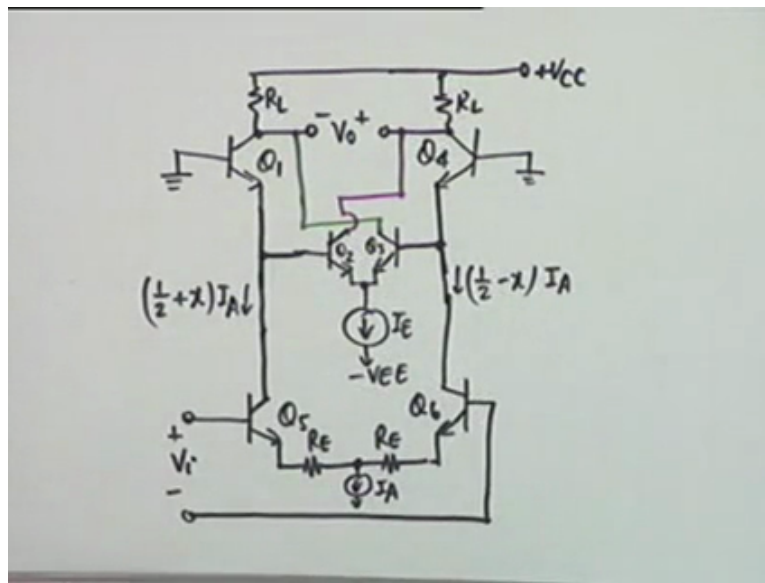 +VCC
RL
RL
- Vo +
Q1
Q4
Q2
Q3
(1/2 + x) IA ↓
↓ (1/2 - x) IA
IE
-VEE
Q5
Q6
+
RE
RE
Vi
IA
-